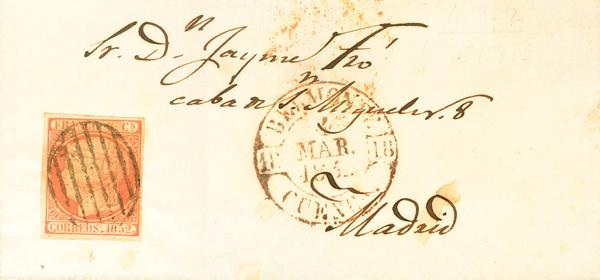 Sr. Dn Jayme Fro
caba n S. Miguel n. 8
Madrid
BELMONTE
MAR.
18 18
CUENCA
FRANCO CS
CORREOS. 1852.